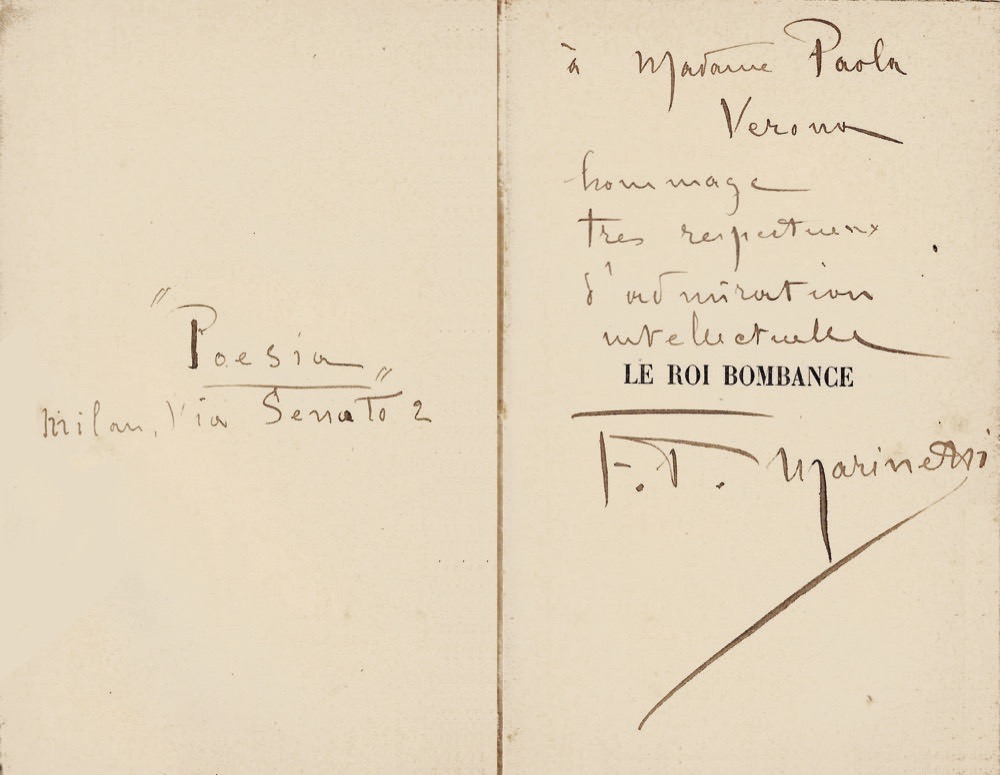 "Poesia"
Milan, Via Senato 2
à Madame Paola
Verona
hommage
tres respectueux
d'admiration
intellectuelle
LE ROI BOMBANCE
F. T. Marinetti